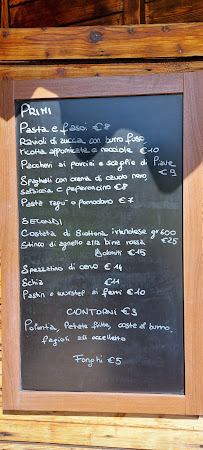 PRIMI
Pasta e fasoi €8
Ravioli di zucca con burro fuso
ricotta affumicata e nocciole €10
Paccheri ai porcini e scaglie di Piave
€9
Spaghetti con crema di cavolo nero
salsiccia e peperoncino €8
Pasta ragu' o pomodoro €7
SECONDI
Costata di Scottona irlandese gr 600
€25
Stinco di agnello alla birra rossa
Dolomiti €15
Spezzatino di cervo €14
Schia €11
Pastin o wurstel ai ferri €10
CONTORNI €3
Polenta, Patate fritte, coste al burro,
fagioli all uccelletto
Funghi €5